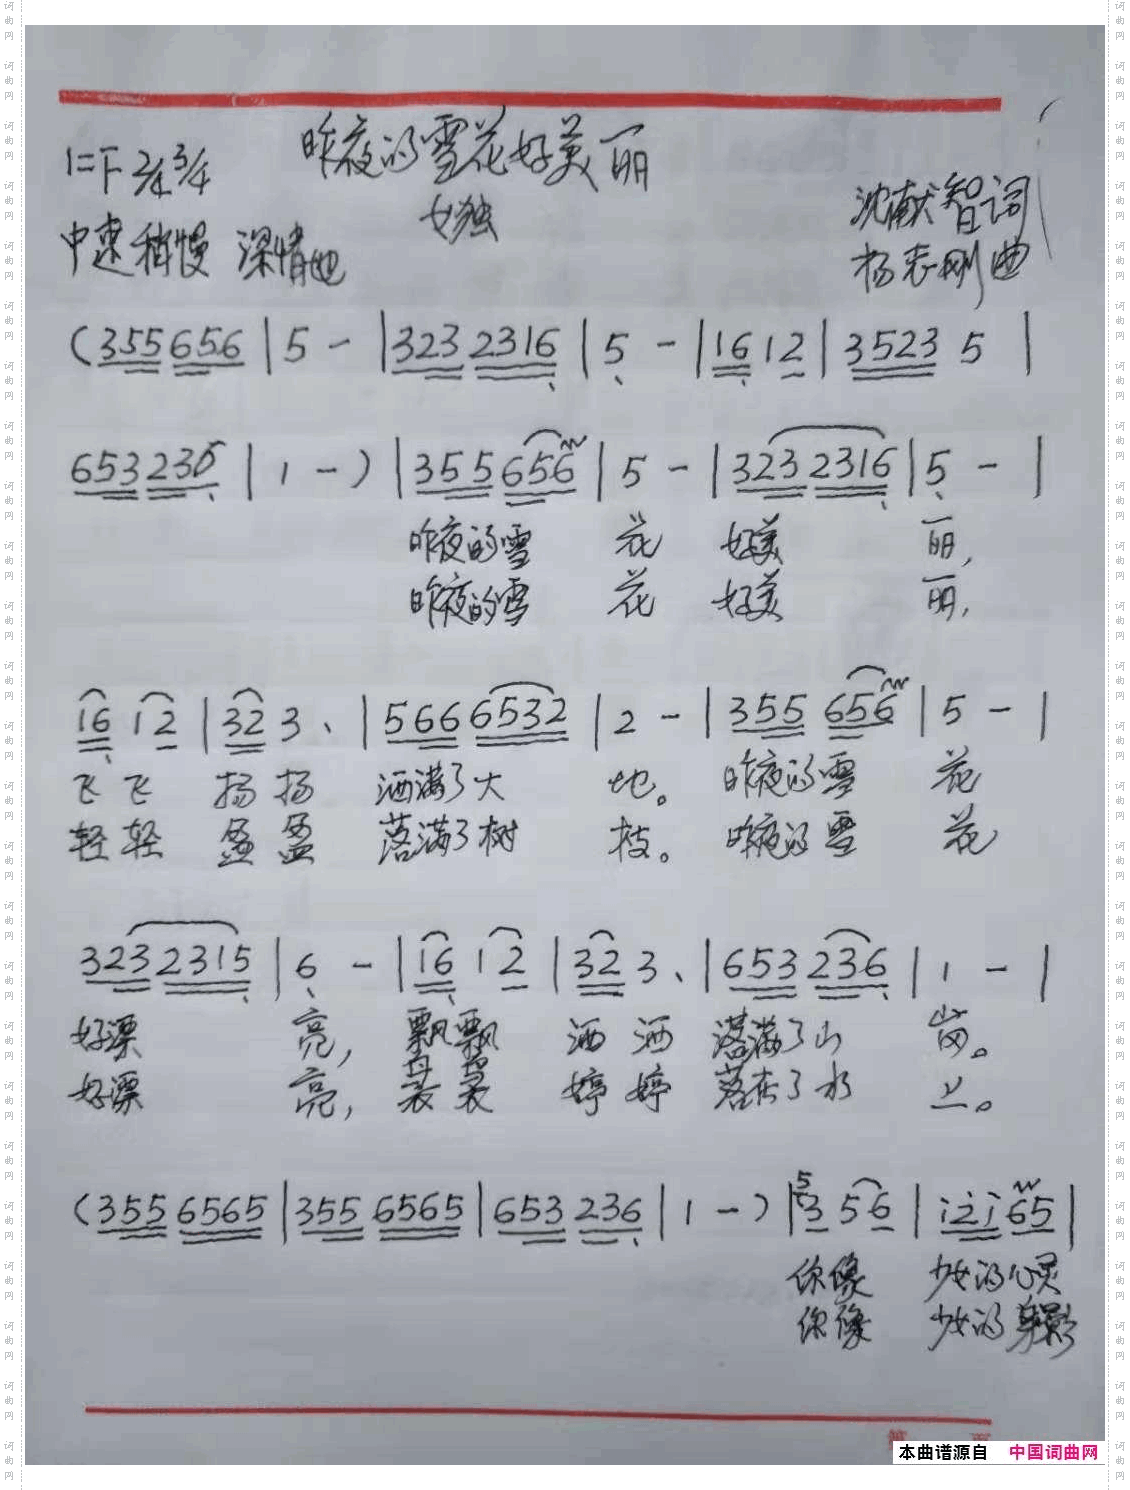 昨夜的雪花好美丽
1=F 2/4 3/4
女独
沈献智词
中速稍慢 深情地
杨志刚曲
(355 656 | 5 - | 323 2316 | 5 - | 16 12 | 3523 5 |
653 236 | 1 - ) | 355 656 | 5 - | 323 2316 | 5 - |
昨夜的雪 花 好美 丽,
昨夜的雪 花 好美 丽,
16 12 | 32 3、 | 566 6532 | 2 - | 355 656 | 5 - |
飞飞 扬扬 洒满了大 地。 昨夜的雪 花
轻轻 盈盈 落满了树 枝。 昨夜的雪 花
323 2315 | 6 - | 16 12 | 32 3、 | 653 236 | 1 - |
好漂 亮, 飘飘 洒洒 落满了山 岗。
好漂 亮, 袅袅 婷婷 落在了水 上。
(355 6565 | 355 6565 | 653 236 | 1 - ) | 5 3 56 | i2i 65 |
你像 少女的心灵
你像 少女的身影
本曲谱源自 中国词曲网